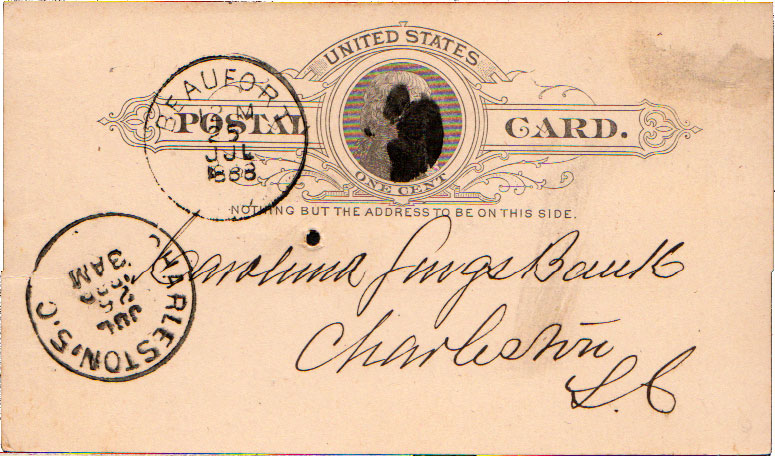 UNITED STATES
POSTAL CARD.
ONE CENT
NOTHING BUT THE ADDRESS TO BE ON THIS SIDE.
BEAUFORT
M
25
JUL
1888
CHARLESTON, S.C
JUL
25
3AM
Carolina Svngs Bank
Charleston
S.C